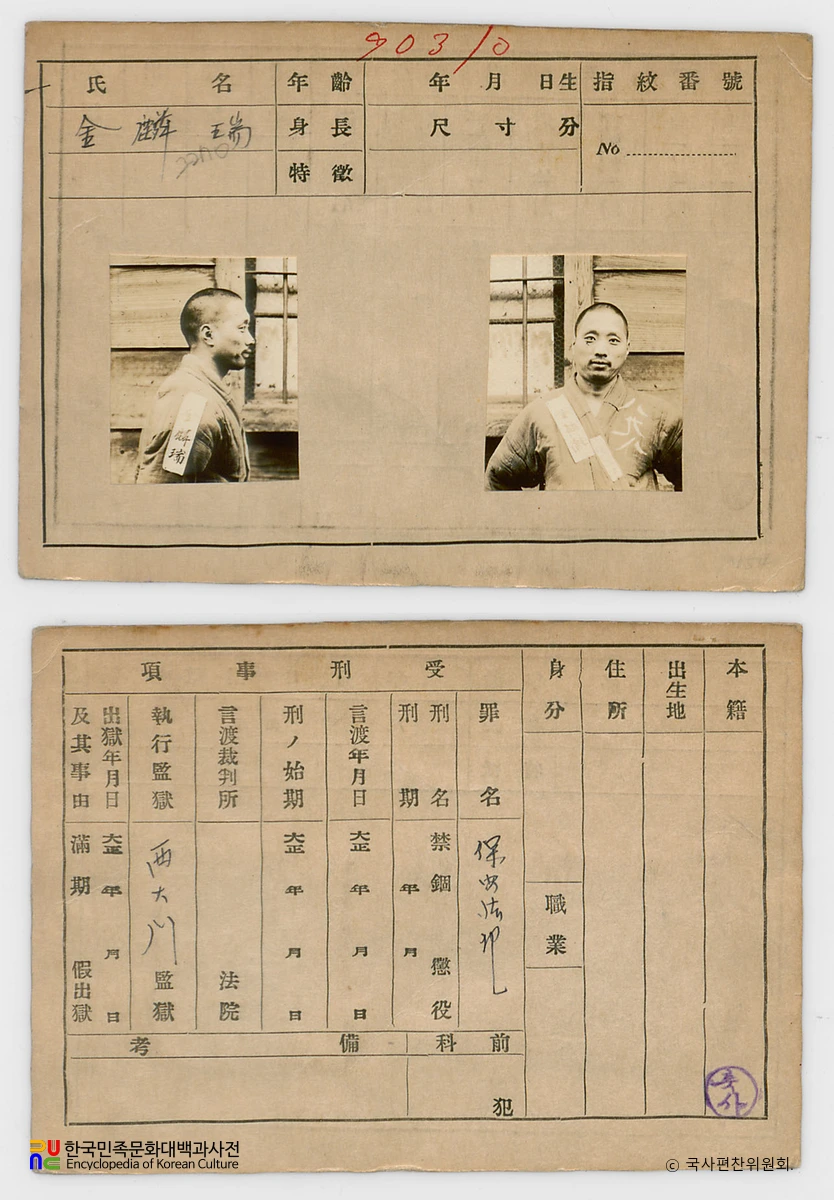 903/0
氏 名
年齡
年 月 日生
指紋番號
金麟瑞
身長
尺 寸 分
No
特徵
麟瑞
一八八
本籍
出生地
住所
身分
職業
受刑事項
罪名
保安法犯
刑名
禁錮 懲役
刑期
年 月
言渡年月日
大正 年 月 日
刑ノ始期
大正 年 月 日
言渡裁判所
法院
執行監獄
西大門監獄
出獄年月日
及其事由
大正 年 月 日
滿期 假出獄
前科
犯
備考
국사
한국민족문화대백과사전
Encyclopedia of Korean Culture
© 국사편찬위원회